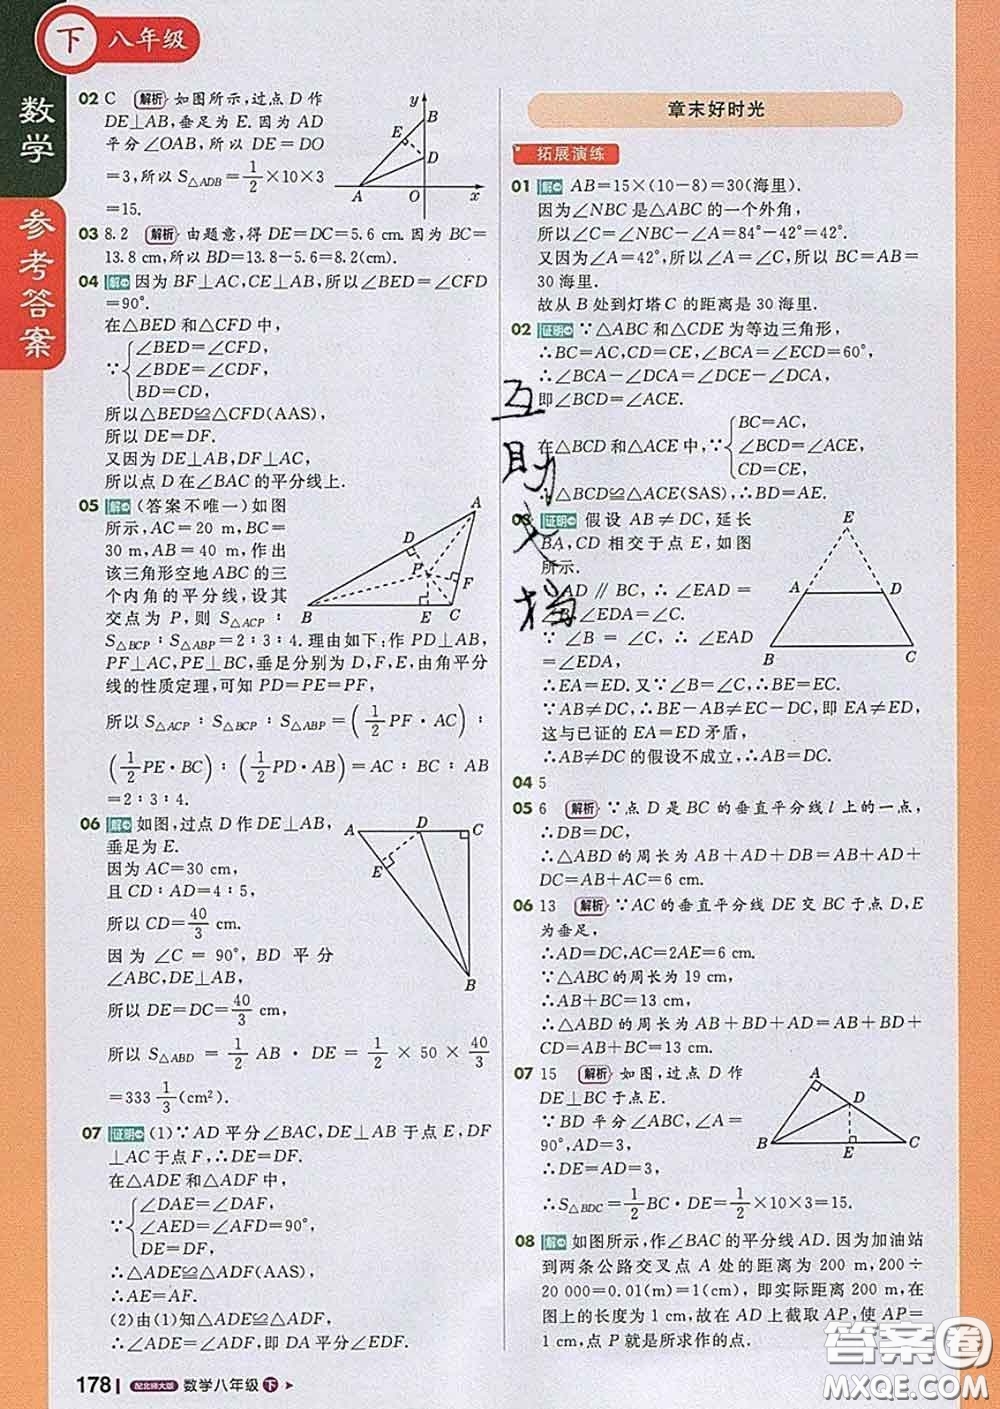 下 八年级
数学
参考答案
02 C 解析 如图所示,过点 D 作
DE⊥AB,垂足为 E.因为 AD
平分∠OAB,所以 DE=DO
=3,所以 S△ADB=1/2×10×3
=15.
y
B
E
D
A
O
x
03 8.2 解析 由题意,得 DE=DC=5.6 cm.因为 BC=
13.8 cm,所以 BD=13.8-5.6=8.2(cm).
04 解 因为 BF⊥AC,CE⊥AB,所以∠BED=∠CFD
=90°.
在△BED 和△CFD 中,
∠BED=∠CFD,
∵ ∠BDE=∠CDF,
BD=CD,
所以△BED≌△CFD(AAS),
所以 DE=DF.
又因为 DE⊥AB,DF⊥AC,
所以点 D 在∠BAC 的平分线上.
05 解 (答案不唯一)如图
所示,AC=20 m,BC=
30 m,AB=40 m,作出
该三角形空地 ABC 的三
个内角的平分线,设其
交点为 P,则 S△ACP∶
S△BCP∶S△ABP=2∶3∶4.理由如下:作 PD⊥AB,
PF⊥AC,PE⊥BC,垂足分别为 D,F,E,由角平分
线的性质定理,可知 PD=PE=PF,
所以 S△ACP∶S△BCP∶S△ABP=(1/2 PF·AC)∶
(1/2 PE·BC)∶(1/2 PD·AB)=AC∶BC∶AB
=2∶3∶4.
A
D
P
F
B
E
C
06 解 如图,过点 D 作 DE⊥AB,
垂足为 E.
因为 AC=30 cm,
且 CD∶AD=4∶5,
所以 CD=40/3 cm.
因为∠C=90°,BD 平分
∠ABC,DE⊥AB,
所以 DE=DC=40/3 cm,
所以 S△ABD=1/2 AB·DE=1/2×50×40/3
=333 1/3(cm²).
A
D
C
E
B
07 证明 (1)∵AD 平分∠BAC,DE⊥AB 于点 E,DF
⊥AC 于点 F,∴DE=DF.
在△ADE 和△ADF 中,
∠DAE=∠DAF,
∵ ∠AED=∠AFD=90°,
DE=DF,
∴△ADE≌△ADF(AAS),
∴AE=AF.
(2)由(1)知△ADE≌△ADF,
∴∠ADE=∠ADF,即 DA 平分∠EDF.
178 配北师大版 数学八年级 下
章末好时光
拓展演练
01 解 AB=15×(10-8)=30(海里).
因为∠NBC 是△ABC 的一个外角,
所以∠C=∠NBC-∠A=84°-42°=42°.
又因为∠A=42°,所以∠C=∠A,所以 BC=AB=
30 海里.
故从 B 处到灯塔 C 的距离是 30 海里.
02 证明 ∵△ABC 和△CDE 为等边三角形,
∴BC=AC,CD=CE,∠BCA=∠ECD=60°,
∴∠BCA-∠DCA=∠DCE-∠DCA,
即∠BCD=∠ACE.
BC=AC,
在△BCD 和△ACE 中,∵ ∠BCD=∠ACE,
CD=CE,
∴△BCD≌△ACE(SAS),∴BD=AE.
03 证明 假设 AB≠DC,延长
BA,CD 相交于点 E,如图
所示.
∵AD∥BC,∴∠EAD=
∠B,∠EDA=∠C.
∵∠B=∠C,∴∠EAD
=∠EDA,
∴EA=ED.又∵∠B=∠C,∴BE=EC.
∵AB≠DC,∴BE-AB≠EC-DC,即 EA≠ED,
这与已证的 EA=ED 矛盾,
∴AB≠DC 的假设不成立,∴AB=DC.
E
A
D
B
C
04 5
05 6 解析 ∵点 D 是 BC 的垂直平分线 l 上的一点,
∴DB=DC,
∴△ABD 的周长为 AB+AD+DB=AB+AD+
DC=AB+AC=6 cm.
06 13 解析 ∵AC 的垂直平分线 DE 交 BC 于点 D,E
为垂足,
∴AD=DC,AC=2AE=6 cm.
∵△ABC 的周长为 19 cm,
∴AB+BC=13 cm,
∴△ABD 的周长为 AB+BD+AD=AB+BD+
CD=AB+BC=13 cm.
07 15 解析 如图,过点 D 作
DE⊥BC 于点 E.
∵BD 平分∠ABC,∠A=
90°,AD=3,
∴DE=AD=3,
∴S△BDC=1/2 BC·DE=1/2×10×3=15.
A
D
B
E
C
08 解 如图所示,作∠BAC 的平分线 AD.因为加油站
到两条公路交叉点 A 处的距离为 200 m,200÷
20 000=0.01(m)=1(cm),即实际距离 200 m,在
图上的长度为 1 cm,故在 AD 上截取 AP,使 AP=
1 cm,点 P 就是所求作的点.
互助文档
答案圈
MXQE.COM